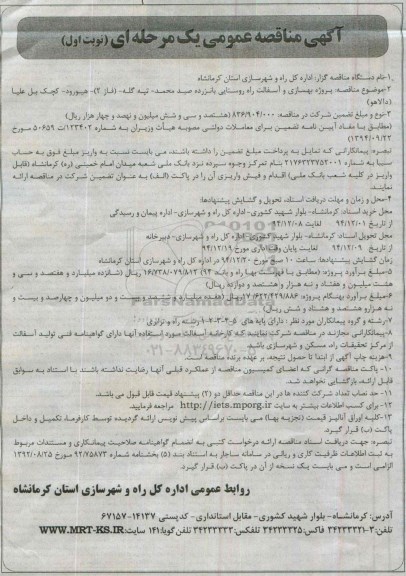 آگهی مناقصه عمومی یک مرحله ای (نوبت اول)
۱-نام دستگاه مناقصه گزار: اداره کل راه و شهرسازی استان کرمانشاه
۲-موضوع مناقصه: پروژه بهسازی و آسفالت راه روستایی پانزده صید محمد- تپه گله- (فاز ۲)- هیرود- کچک بل علیا
(دالاهو)
۳-نوع و مبلغ تضمین شرکت در مناقصه: ۸۳۶/۹۰۴/۰۰۰ (هشتصد و سی و شش میلیون و نهصد و چهار هزار ریال)
(مطابق با مفاد آیین نامه تضمین برای معاملات دولتی مصوبه هیأت وزیران به شماره ۱۲۳۴۰۲/ت ۵۰۶۵۹ مورخ
۱۳۹۴/۰۹/۲۲)
تبصره: پیمانکارانی که تمایل به پرداخت مبلغ تضمین را داشته باشند، می بایست نسبت به واریز مبلغ فوق به حساب
سیبا به شماره ۲۱۷۶۳۲۳۷۵۲۰۰۱ بنام تمرکز وجوه سپرده نزد بانک ملی شعبه میدان امام خمینی (ره) کرمانشاه (قابل
واریز در کلیه شعب بانک ملی) اقدام و فیش واریزی آن را در پاکت (الف) به عنوان تضمین شرکت در مناقصه ارائه
نمایند.
۴-محل و زمان و مهلت دریافت اسناد، تحویل و گشایش پیشنهادها:
محل خرید اسناد: کرمانشاه- بلوار شهید کشوری- اداره کل راه و شهرسازی- اداره پیمان و رسیدگی
از تاریخ ۹۴/۱۲/۰۱ لغایت ۹۴/۱۲/۰۸
محل تحویل اسناد: کرمانشاه- بلوار شهید کشوری- اداره کل راه و شهرسازی- دبیرخانه
از تاریخ ۹۴/۱۲/۰۹ لغایت پایان وقت اداری مورخ ۹۴/۱۲/۱۹
زمان گشایش پیشنهادها: ساعت ۱۰ صبح مورخ ۹۴/۱۲/۲۰ در اداره کل راه و شهرسازی استان کرمانشاه
۵-مبلغ برآورد پروژه: (مطابق با فهرست بها راه و باند ۹۴) ۱۶/۷۳۸/۰۷۹/۸۱۲ ریال (شانزده میلیارد و هفتصد و سی و
هشت میلیون و هفتاد و نه هزار و هشتصد و دوازده ریال)
۶-مبلغ برآورد بهنگام پروژه:
۷-رشته و گروه پیمانکاران مورد نظر : دارای پایه های ۵-۴-۳-۲-۱ رشته راه و ترابری
۸-پیمانکارانی مجازند در مناقصه شرکت نمایند که کارخانه آسفالت مورد استفاده آنها دارای گواهینامه فنی تولید آسفالت
از مرکز تحقیقات راه، مسکن و شهرسازی باشد.
۹-هزینه چاپ آگهی از ابتدا تا حصول نتیجه، بر عهده برنده مناقصه است.
۱۰- پاکت مناقصه گرانی که اعضای کمیسیون مناقصه از عملکرد قبلی آنها رضایت نداشته باشند با استناد به سوابق
قابل ارائه، بازگشایی نخواهد شد.
۱۱- حد نصاب تعداد شرکت کننده ها در این مناقصه حداقل دو (۲) پیشنهاد قیمت قابل قبول می باشد.
۱۲- برای کسب اطلاعات بیشتر به سایت http://iets.mporg.ir مراجعه فرمایید.
۱۳-کلیه اوراق آنالیز قیمت (تجزیه بها) می بایست براساس پیش نویس ارائه گردیده توسط کارفرما، تکمیل و داخل
پاکت (ب) قرار گیرد.
تبصره: جهت دریافت اسناد مناقصه ارائه درخواست کتبی به انضمام گواهینامه صلاحیت پیمانکاری و مستندات مربوط
به ثبت اطلاعات ظرفیت کاری و ریالی در سامانه ساجار به استناد بند (۵) بخشنامه شماره ۹۲/۷۵۸۷۳ مورخ ۱۳۹۲/۰۸/۲۵
الزامی است و می بایست یک نسخه از آن در پاکت (ب) قرار گیرد.
روابط عمومی اداره کل راه و شهرسازی استان کرمانشاه
آدرس: کرمانشاه- بلوار شهید کشوری- مقابل استانداری- کدپستی ۱۴۱۳۷-۶۷۱۵۷
تلفن: ۳-۳۴۲۳۳۲۲۱ فاکس: ۳۴۲۳۳۲۲۵ تلفکس: ۳۴۲۳۳۳۳۳ تلفن گویا: ۱۴۱ سایت: WWW.MRT-KS.IR